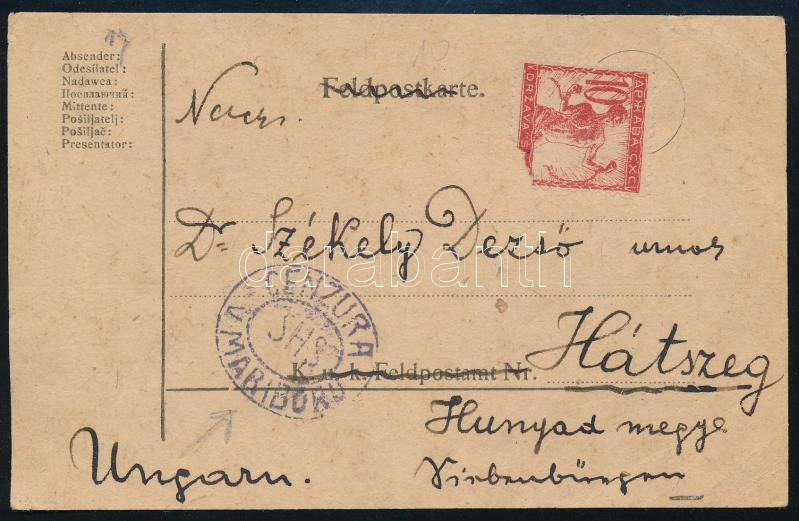 17
Absender:
Odesílatel:
Nadawca:
Посилаючий:
Mittente:
Pošiljatelj:
Pošiljač:
Presentator:
Feldpostkarte.
10
DRŽAVA
ДРЖАВА СХС
Dr Székely Dezső urnak
darabanth
CENZURA
SHS
V MARIBORU
K. u. k. Feldpostamt Nr.
Hátszeg
Hunyad megye
Siebenbürgen
Ungarn.